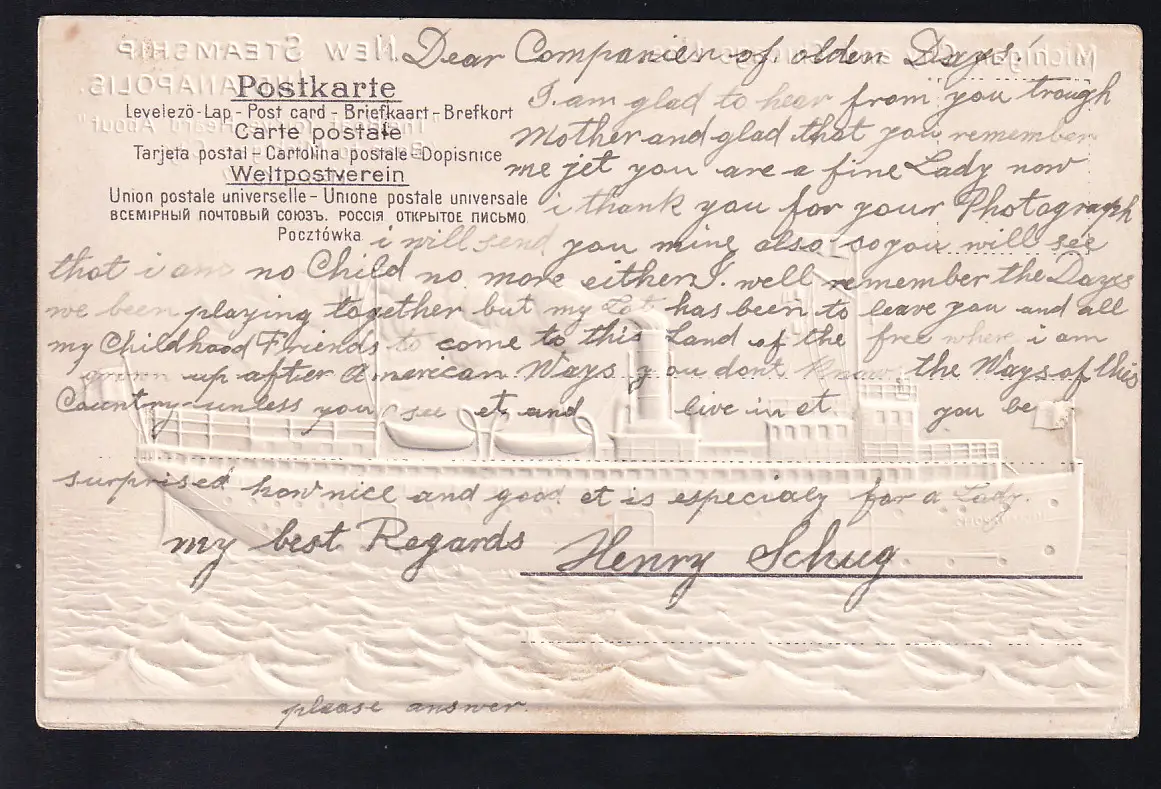 Dear Companion of olden Days!
Postkarte
Levelező-Lap - Post card - Briefkaart - Brefkort
Carte postale
Tarjeta postal - Cartolina postale - Dopisnice
Weltpostverein
Union postale universelle - Unione postale universale
ВСЕМІРНЫЙ ПОЧТОВЫЙ СОЮЗЪ. РОССІЯ ОТКРЫТОЕ ПИСЬМО.
Pocztówka
I am glad to hear from you trough
Mother and glad that you remember
me jet you are a fine Lady now
i thank you for your Photograph
i will send you mine also so you will see
that i am no Child no more either I well remember the Days
we been playing together but my Lot has been to leave you and all
my Childhood Friends to come to this Land of the free where i am
grown up after American Ways you dont Know the Ways of this
Country unless you see et and live in et you be
surprised how nice and good et is especialy for a Lady.
my best Regards Henry Schug.
please answer.
NEW STEAMSHIP
INDIANAPOLIS.
Michigan City and Chicago